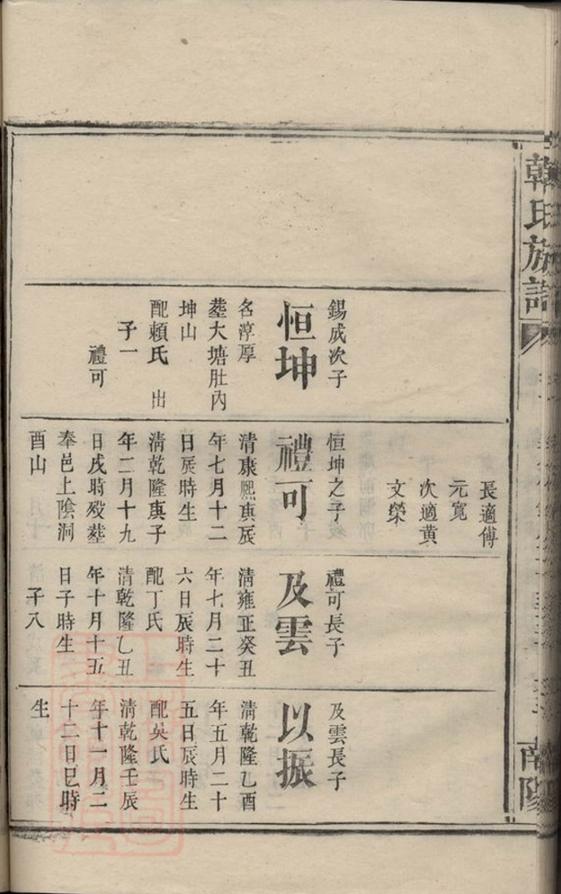 韓氏族譜
南陽
錫成次子
恒坤
名淳厚
塟大塘肚內
坤山
配賴氏 出
子一
禮可
長適傅
元寬
次適黄
文榮
恒坤之子
禮可
清康熙庚辰
年七月十二
日辰時生
清乾隆庚子
年二月十九
日戌時殁塟
奉邑上陰洞
酉山
禮可長子
及雲
清雍正癸丑
年七月二十
六日辰時生
配丁氏
清乾隆乙丑
年十月十五
日子時生
子八
及雲長子
以振
清乾隆乙酉
年五月二十
五日辰時生
配吳氏
清乾隆壬辰
年十一月二
十二日巳時
生